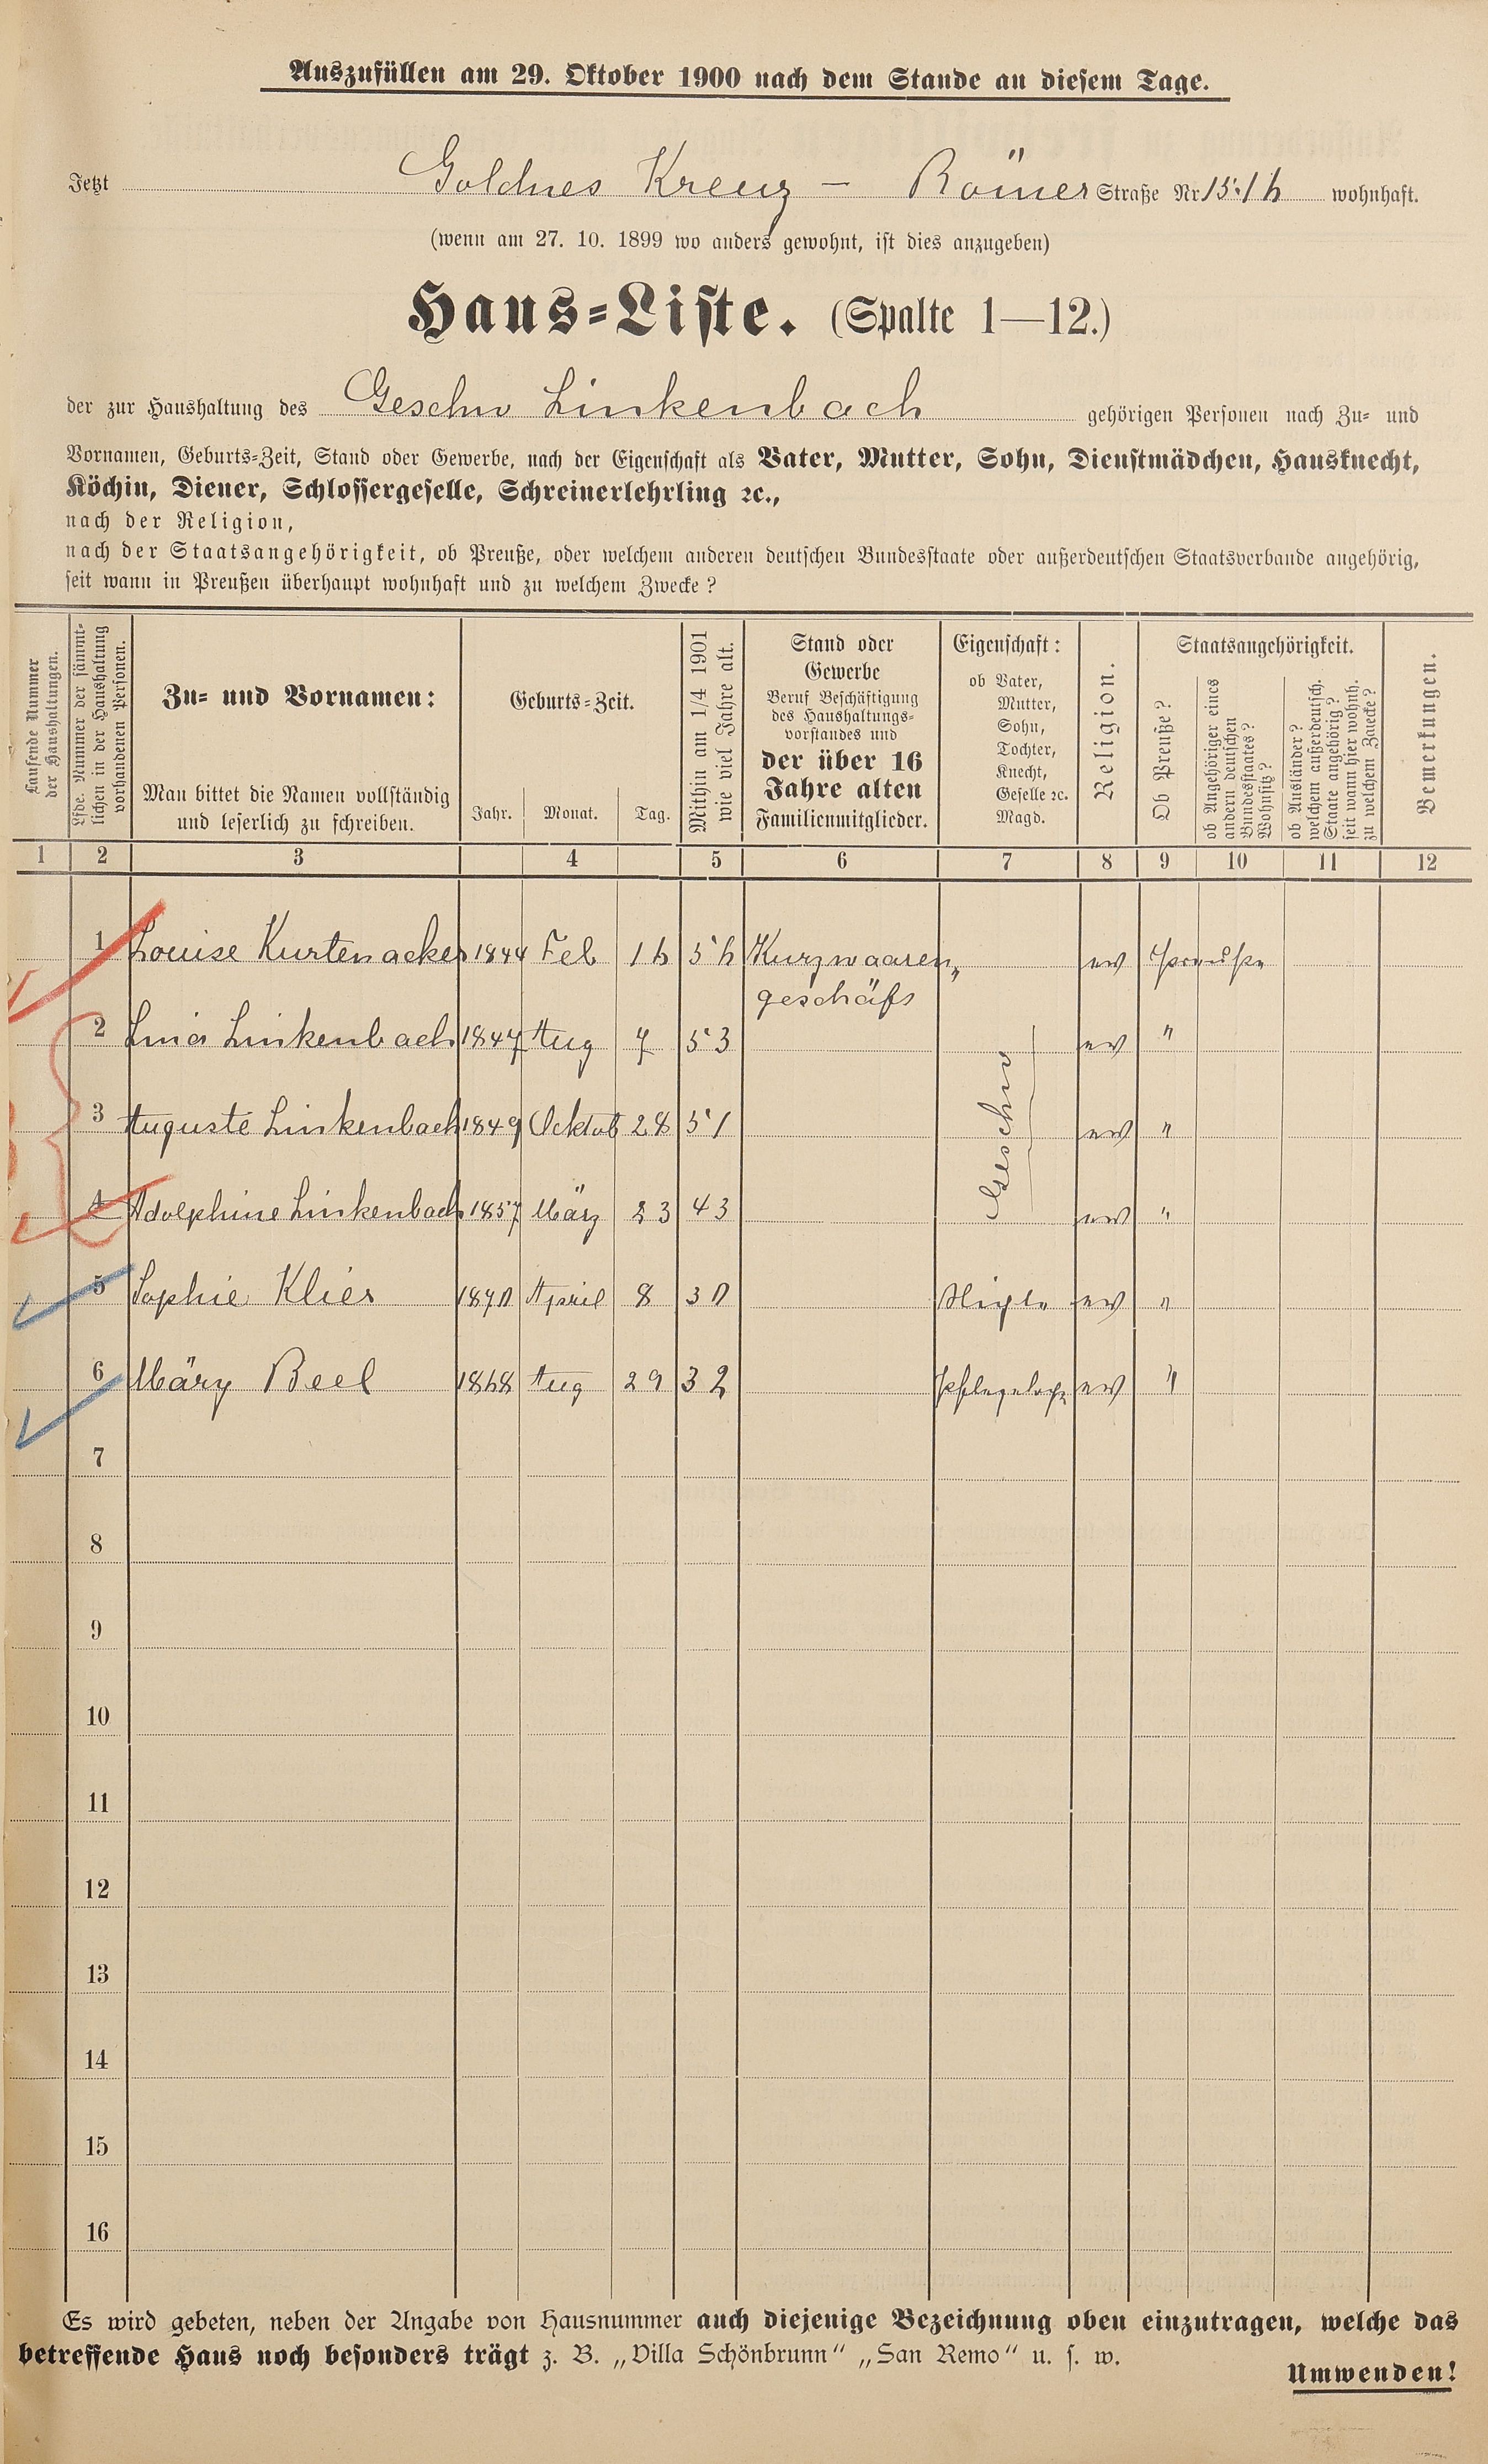 Auszufüllen am 29. Oktober 1900 nach dem Stande an diesem Tage.
Jetzt Goldnes Kreuz – Römer Straße Nr 15.16 wohnhaft.
(wenn am 27. 10. 1899 wo anders gewohnt, ist dies anzugeben)
Haus-Liste. (Spalte 1—12.)
der zur Haushaltung des Geschw Linkenbach gehörigen Personen nach Zu- und
Vornamen, Geburts-Zeit, Stand oder Gewerbe, nach der Eigenschaft als Vater, Mutter, Sohn, Dienstmädchen, Hausknecht,
Köchin, Diener, Schlossergeselle, Schreinerlehrling ꝛc.,
nach der Religion,
nach der Staatsangehörigkeit, ob Preuße, oder welchem anderen deutschen Bundesstaate oder außerdeutschen Staatsverbande angehörig,
seit wann in Preußen überhaupt wohnhaft und zu welchem Zwecke?
Laufende Nummer
der Haushaltungen.
Lfde. Nummer der sämmt-
lichen in der Haushaltung
vorhandenen Personen.
Zu- und Vornamen:
Man bittet die Namen vollständig
und leserlich zu schreiben.
Geburts-Zeit.
Jahr. Monat. Tag.
Mithin am 1/4 1901
wie viel Jahre alt.
Stand oder
Gewerbe
Beruf Beschäftigung
des Haushaltungs-
vorstandes und
der über 16
Jahre alten
Familienmitglieder.
Eigenschaft:
ob Vater,
Mutter,
Sohn,
Tochter,
Knecht,
Geselle ꝛc.
Magd.
Religion.
Staatsangehörigkeit.
Ob Preuße?
ob Angehöriger eines
andern deutschen
Bundesstaates?
Wohnsitz?
ob Ausländer?
welchem außerdeutsch.
Staate angehörig?
seit wann hier wohnh.
zu welchem Zwecke?
Bemerkungen.
1 2 3 4 5 6 7 8 9 10 11 12
1 Louise Kurtenacker 1844 Feb 16 56 Kurzwaaren„ ev Preuße
geschäft
2 Lina Linkenbach 1847 Aug 7 53 ev "
Geschw
3 Auguste Linkenbach 1849 Ocktob 28 51 ev "
4 Adolphine Linkenbach 1857 März 23 43 ev "
5 Sophie Klier 1870 April 8 30 ev "
6 Märy Beel 1868 Aug 29 32 ev "
7
8
9
10
11
12
13
14
15
16
Es wird gebeten, neben der Angabe von Hausnummer auch diejenige Bezeichnung oben einzutragen, welche das
betreffende Haus noch besonders trägt z. B. „Villa Schönbrunn“ „San Remo“ u. s. w.
Umwenden!